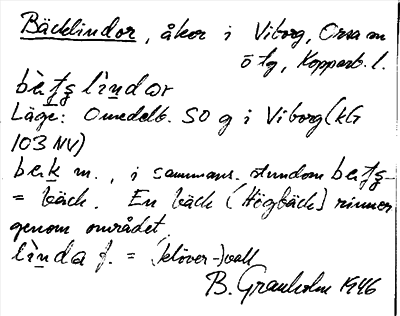 Bäcklindor, åkor i Viborg, Orsa sn
ö tg, Kopparb. l.
bètʂlìndar
Läge: Omedelb. SO g i Viborg (kG
103 NV)
bek m., i sammans. stundom betʂ-
= bäck. En bäck (Högbäck) rinner
genom området.
lìnda f. = (klöver-)vall
B. Granholm 1946